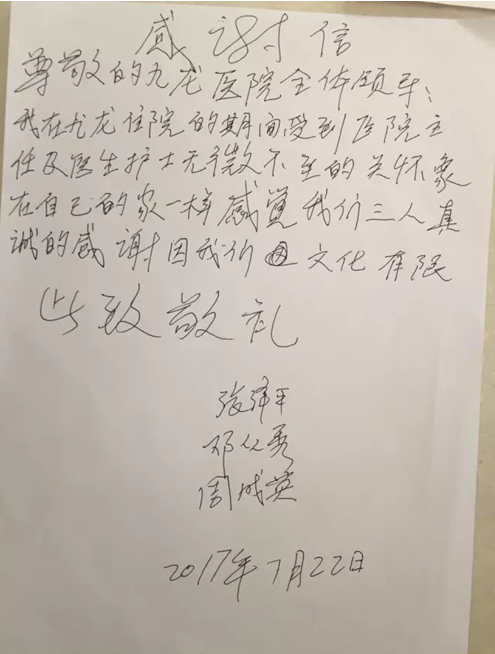 感谢信
尊敬的九龙医院全体领导：
我在九龙住院的期间受到医院主
任及医生护士无微不至的关怀象
在自己的家一样感觉我们三人真
诚的感谢因我们 文化有限
此致敬礼
张泽平
邓从秀
周成英
2017年7月22日